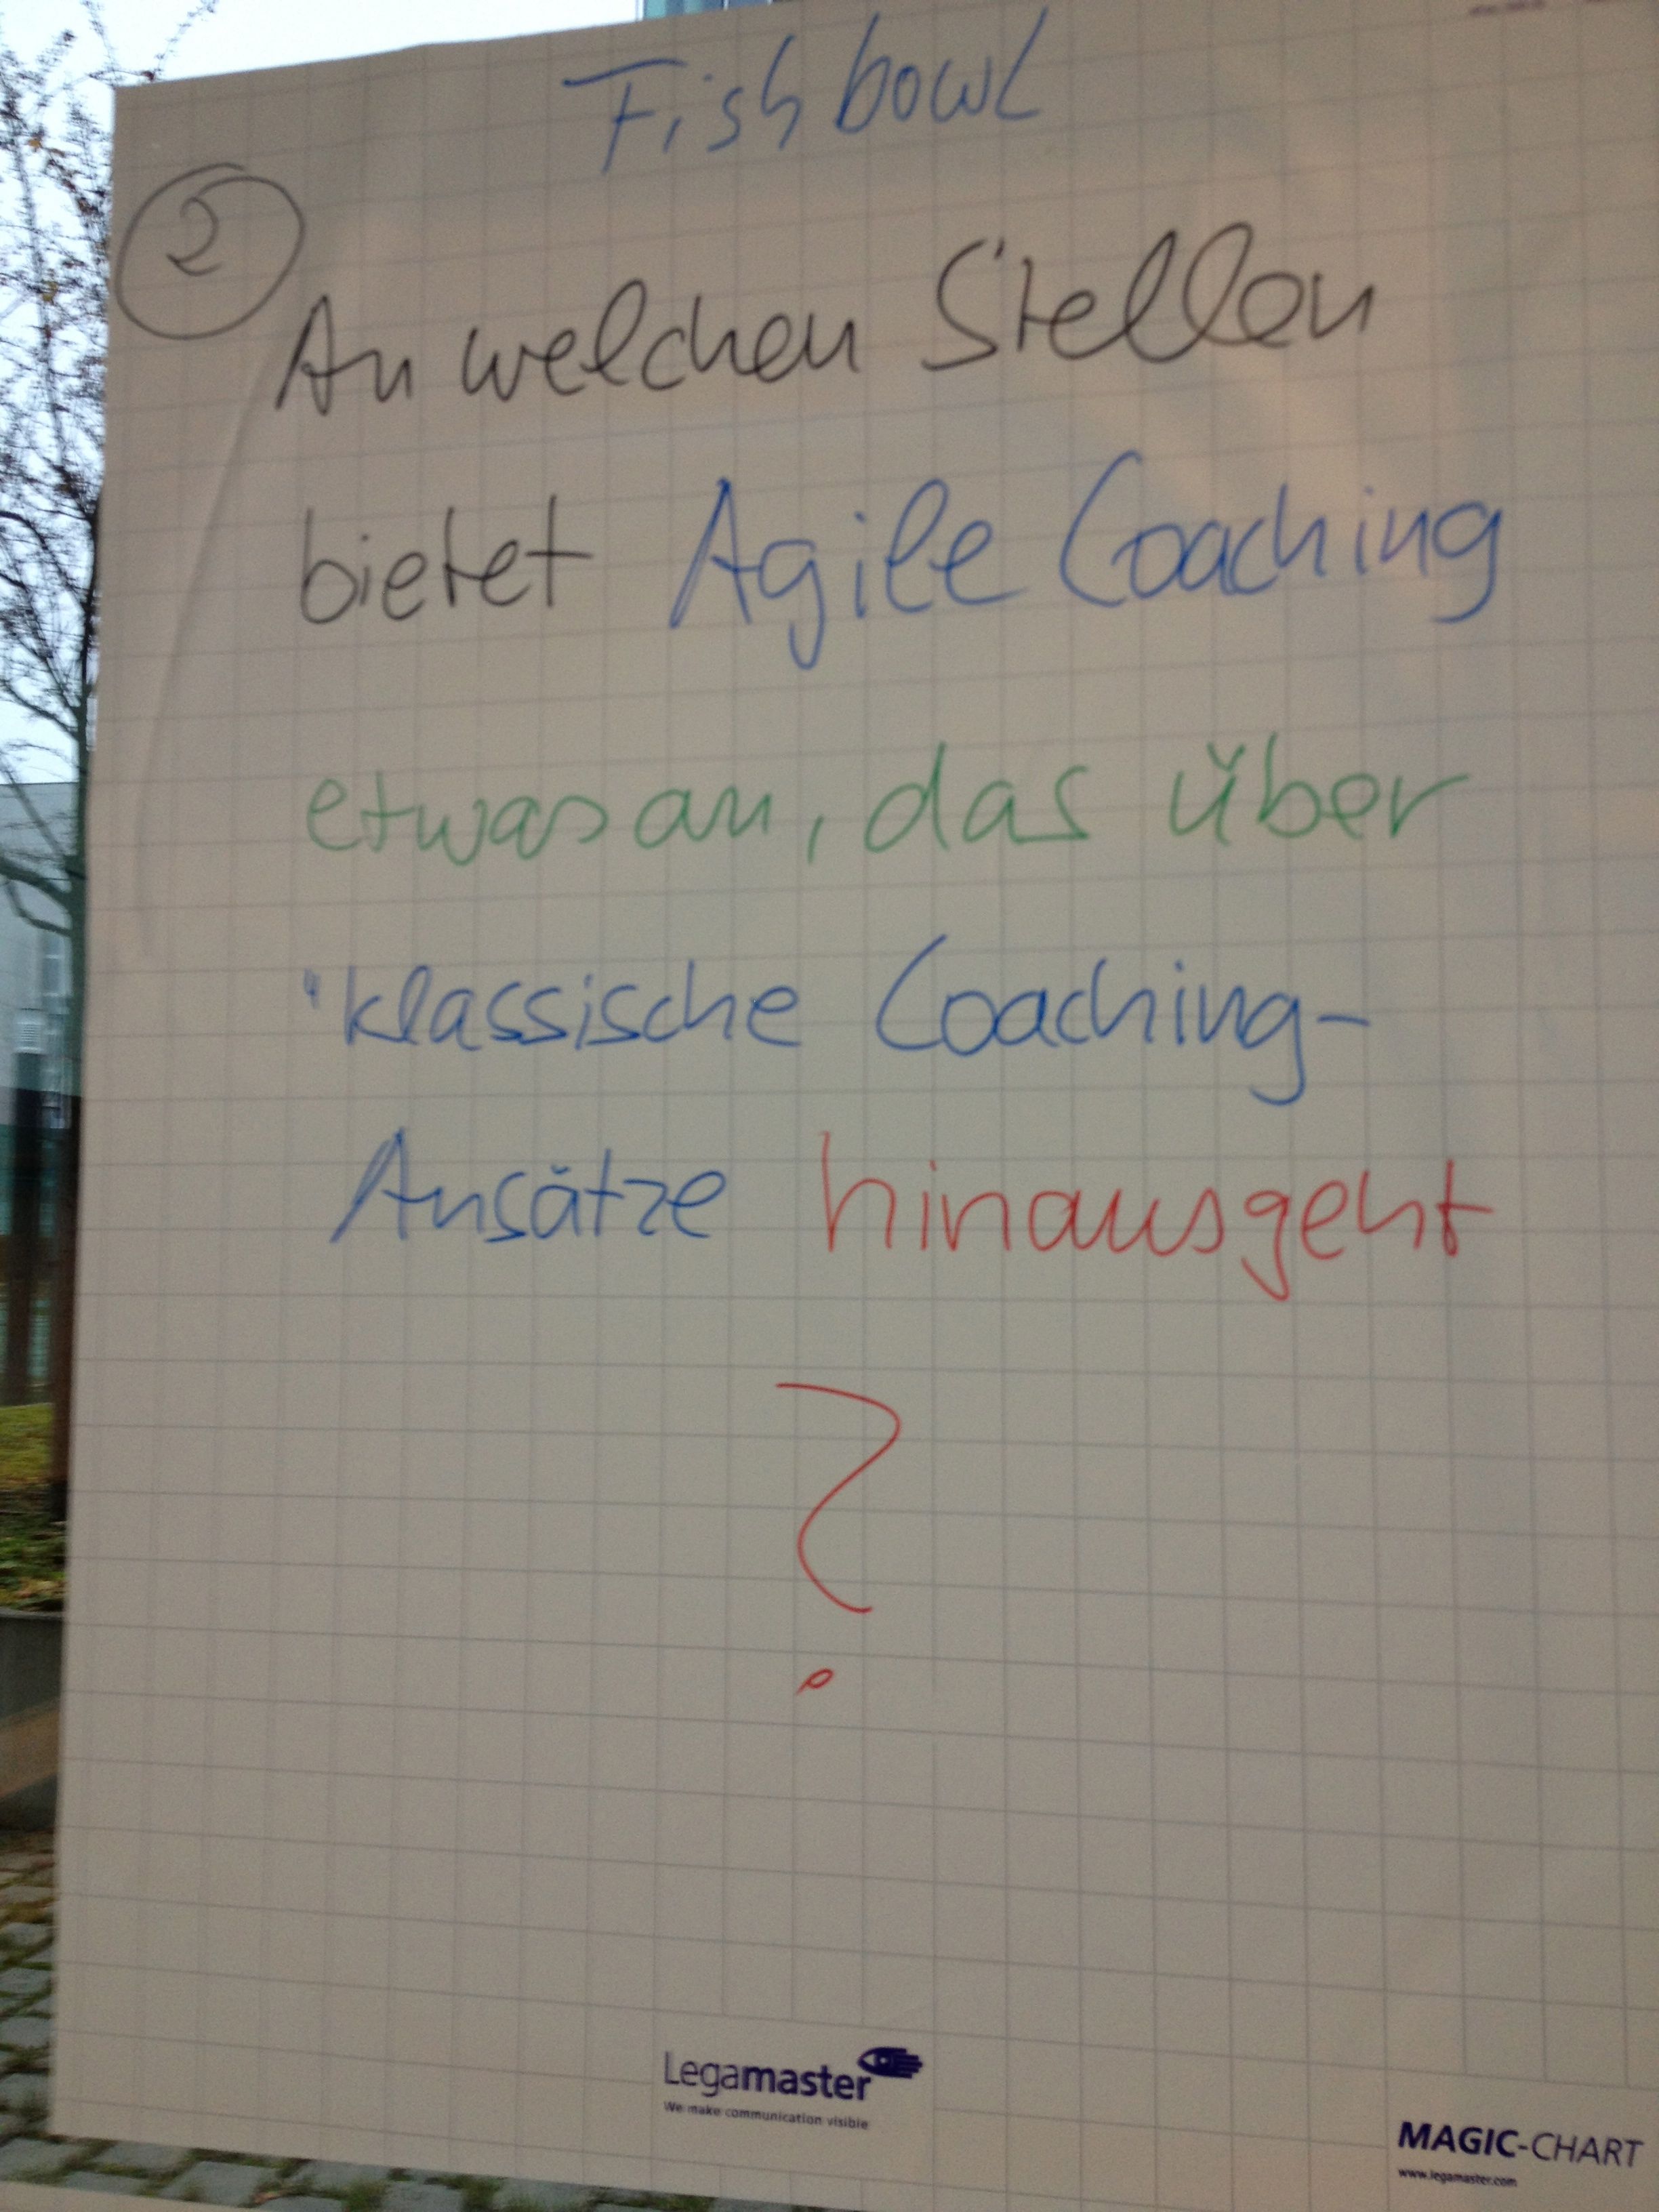 Fishbowl
2
An welchen Stellen
bietet Agile Coaching
etwas an, das über
"klassische Coaching-
Ansätze hinausgeht
?
Legamaster
We make communication visible
MAGIC-CHART
www.legamaster.com